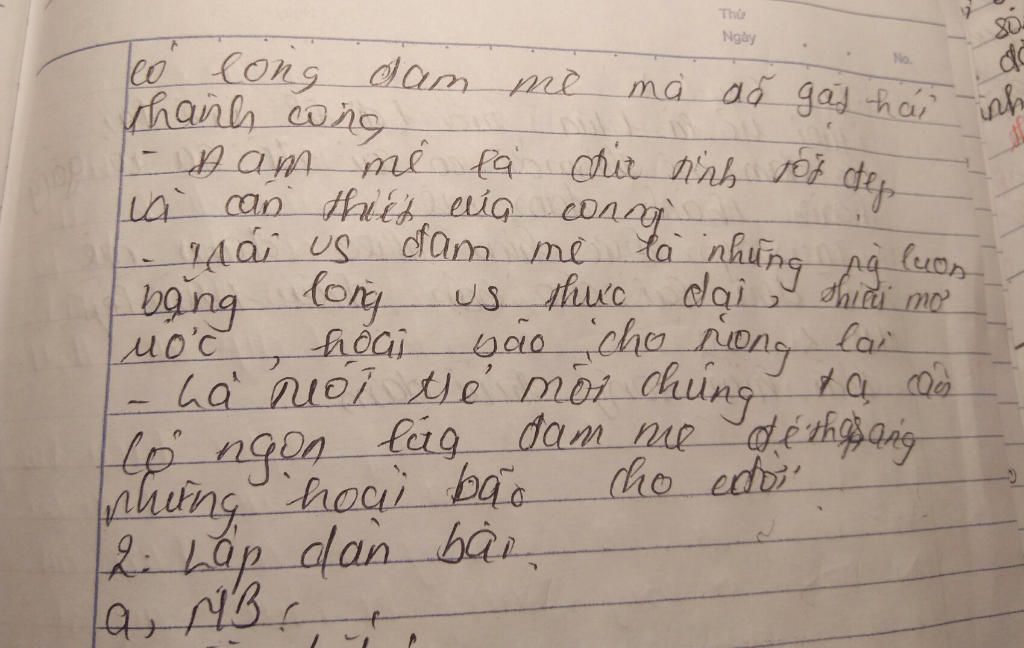 Thứ
Ngày
No.
có lòng đam mê mà đã gặt hái
thành công
- Đam mê là đức tính tốt đẹp
và cần thiết của con ng
- Trái vs đam mê là những ng luôn
bằng lòng vs thực tại, thiếu mơ
ước, hoài bão cho tương lai
- Là tuổi trẻ mỗi chúng ta cần
có ngọn lửa đam mê để thắp sáng
những hoài bão cho cđời
2: Lập dàn bài.
a, MB: